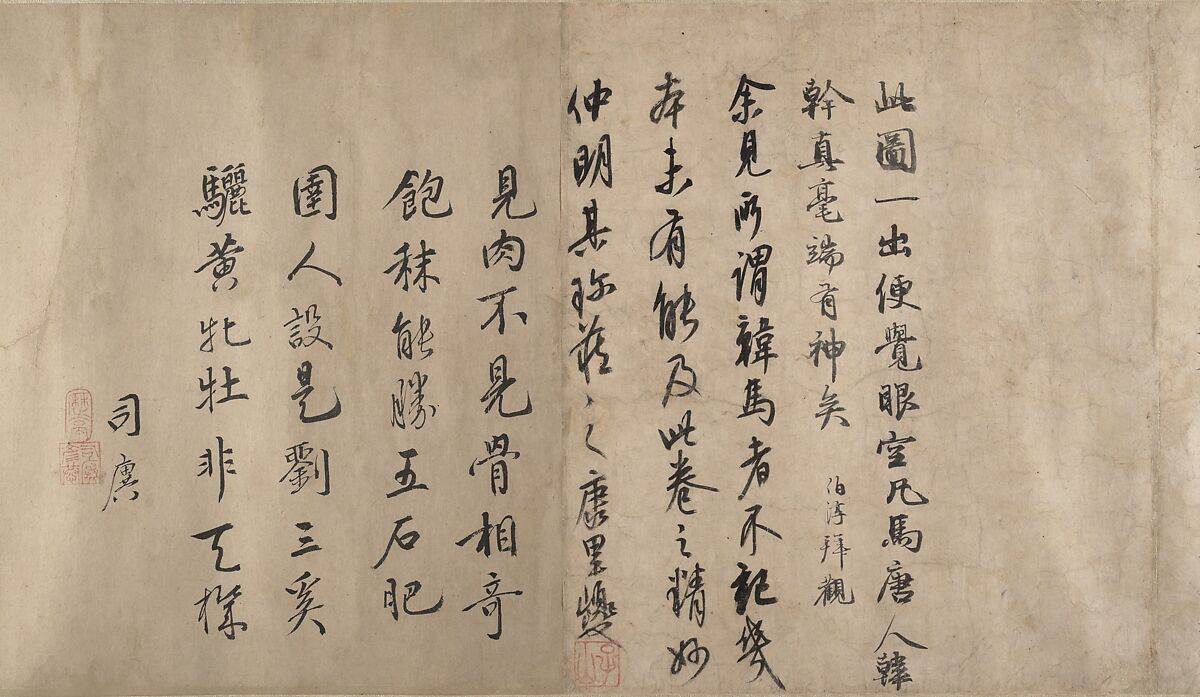 此圖一出便覺眼空凡馬唐人韓
幹真毫端有神矣 伯淳拜觀
余見所謂韓馬者不記幾
本未有能及此卷之精妙
仲明其珍藏〻之康里巎
見肉不見骨相奇
飽秣能勝五石肥
圉人設是劉三奚
驪黃牝牡非天機
司廙